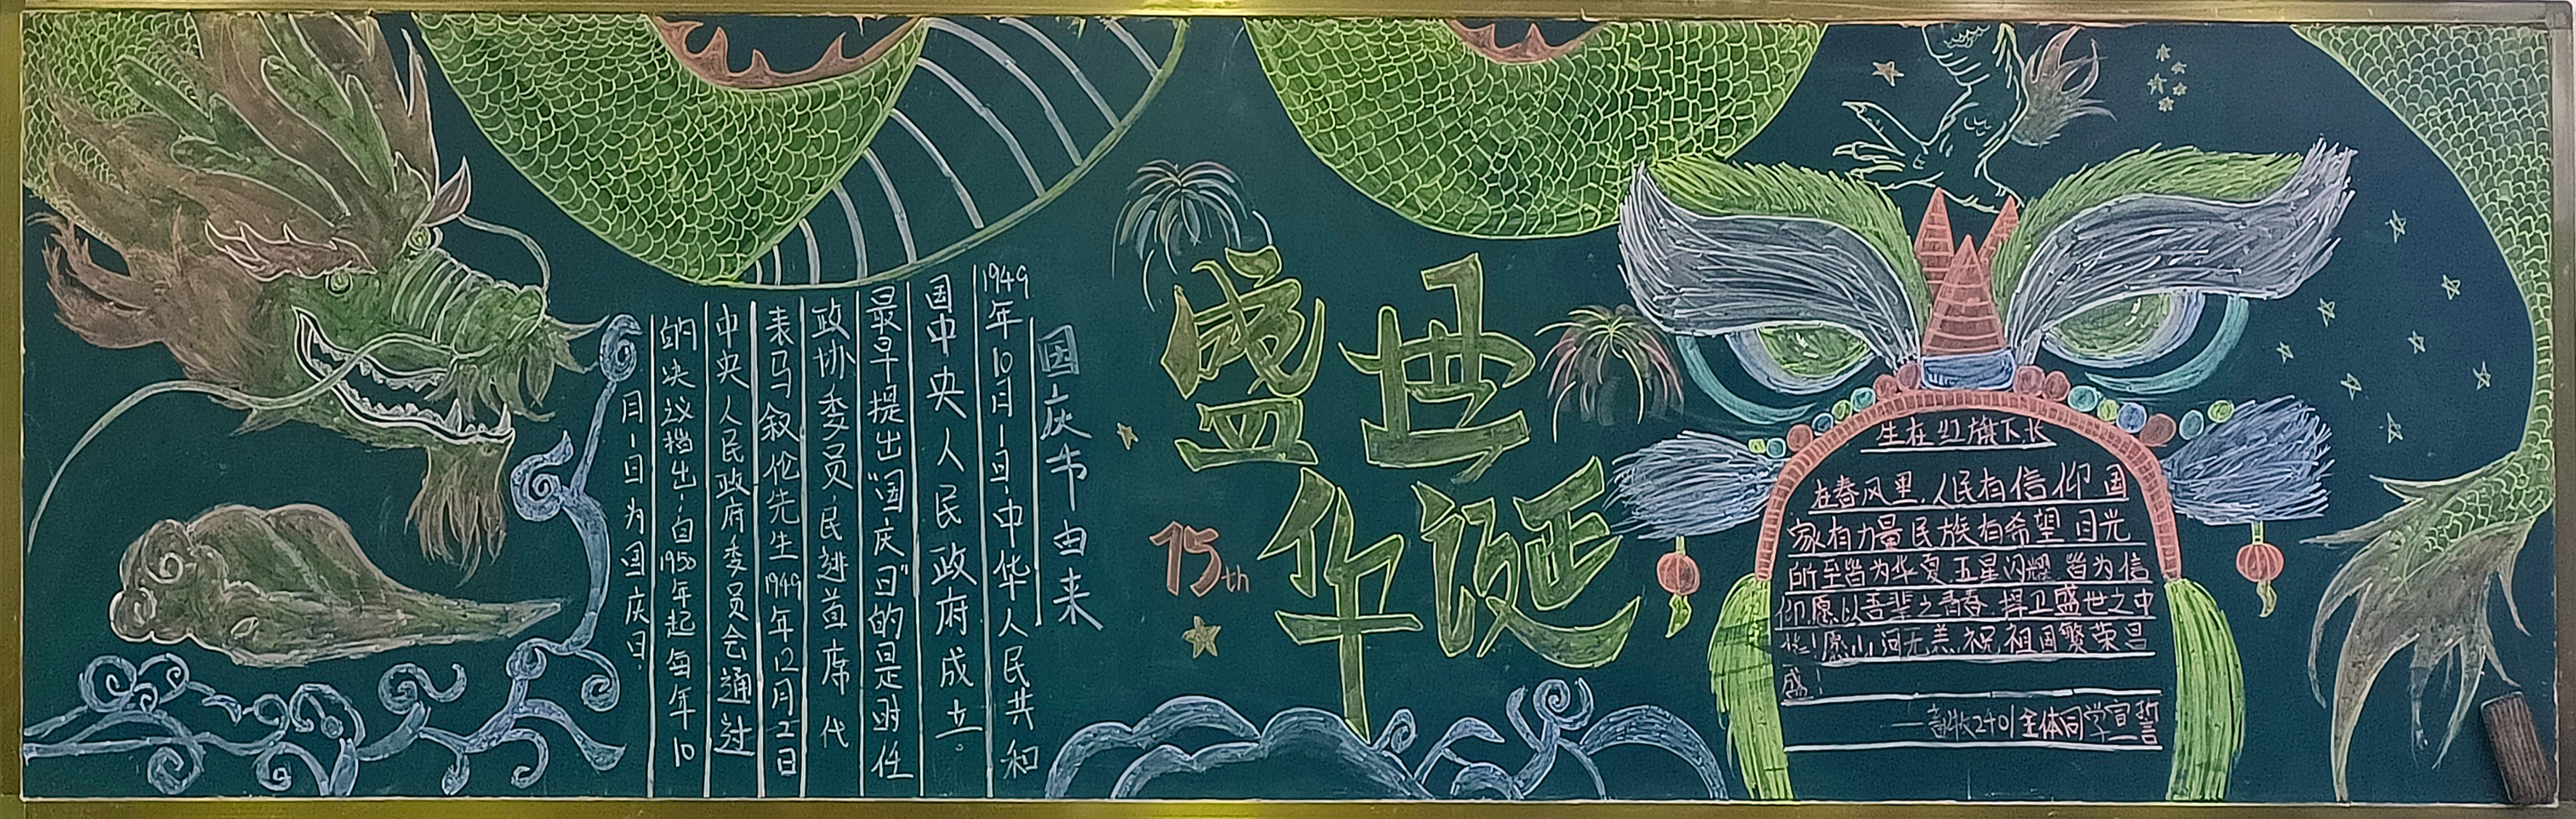 国庆节由来
1949年10月1日,中华人民共和
国中央人民政府成立。
最早提出"国庆日"的是时任
政协委员,民进首席代
表马叙伦先生1949年12月2日
中央人民政府委员会通过
的决议指出:自1950年起每年10
月1日为国庆日。
盛世
华诞
75th
生在红旗下长
在春风里,人民有信仰国
家有力量民族有希望目光
所至皆为华夏五星闪耀皆为信
仰,愿以吾辈之青春捍卫盛世之中
华!愿山河无恙,祝祖国繁荣昌
盛!
2401全体同学宣誓